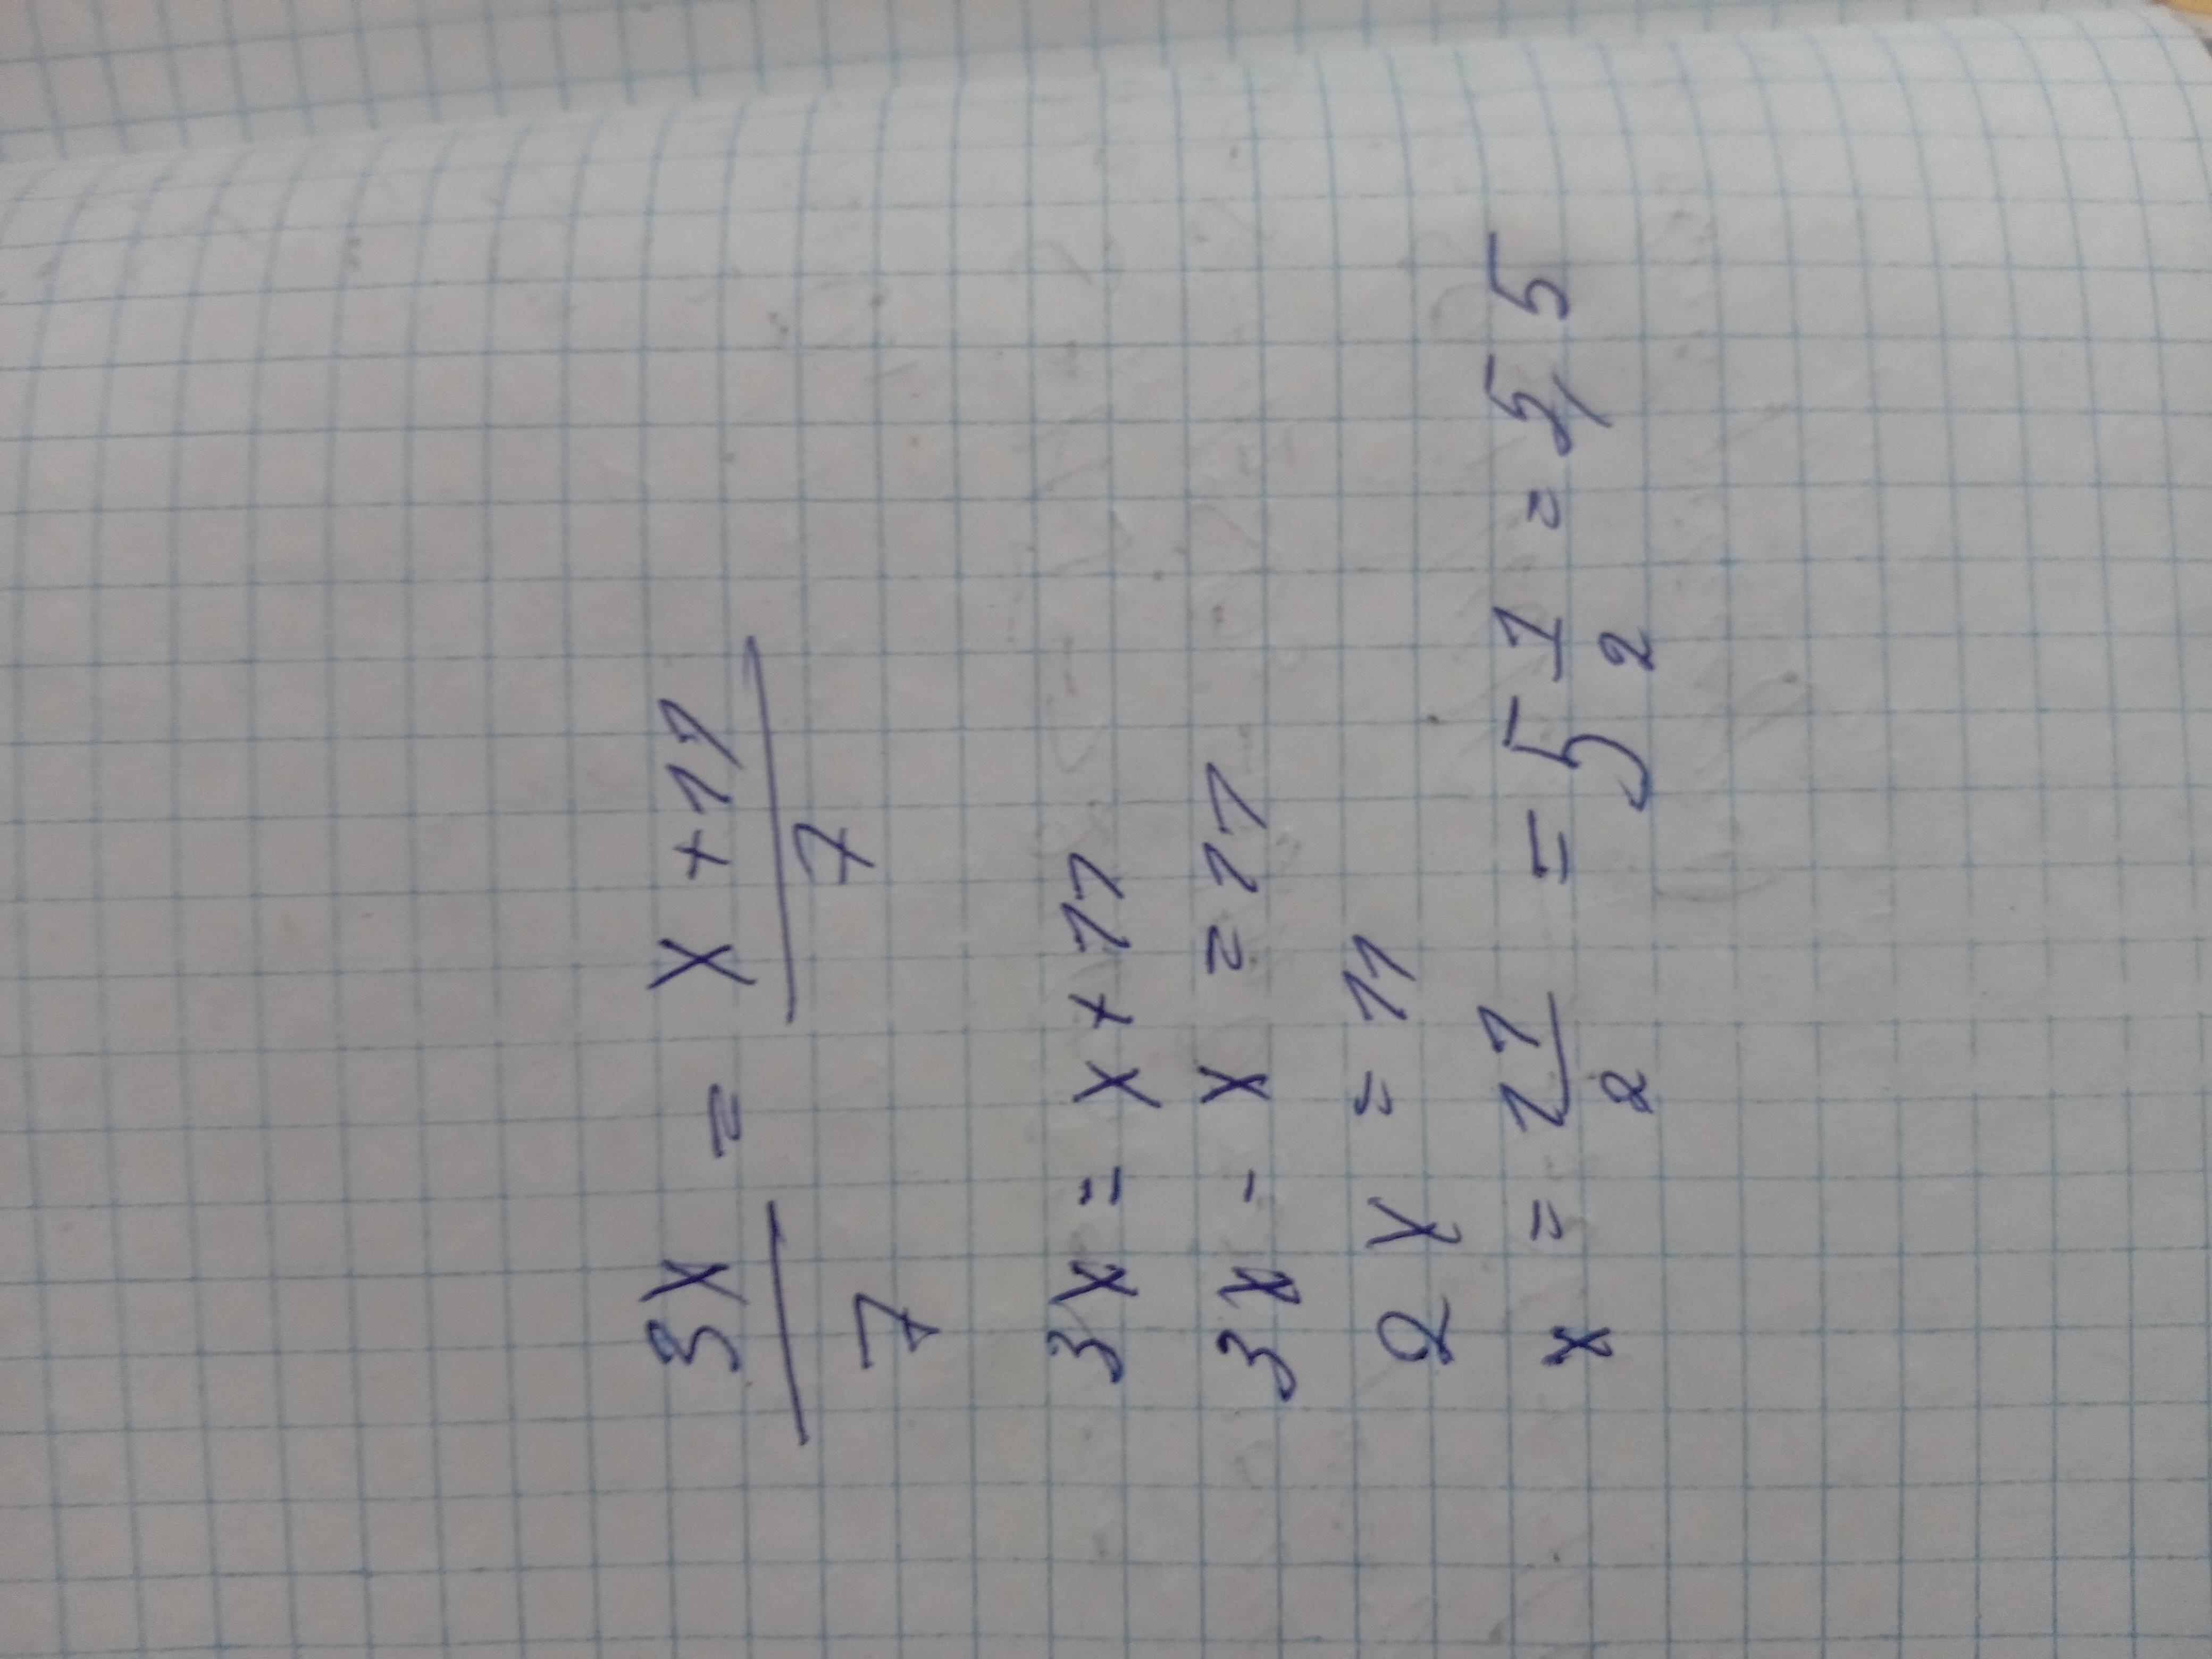 3x/7 = x+11/7
3x = x + 11
3x - x = 11
2x = 11
x = 11/2 = 5 1/2 = 5,5